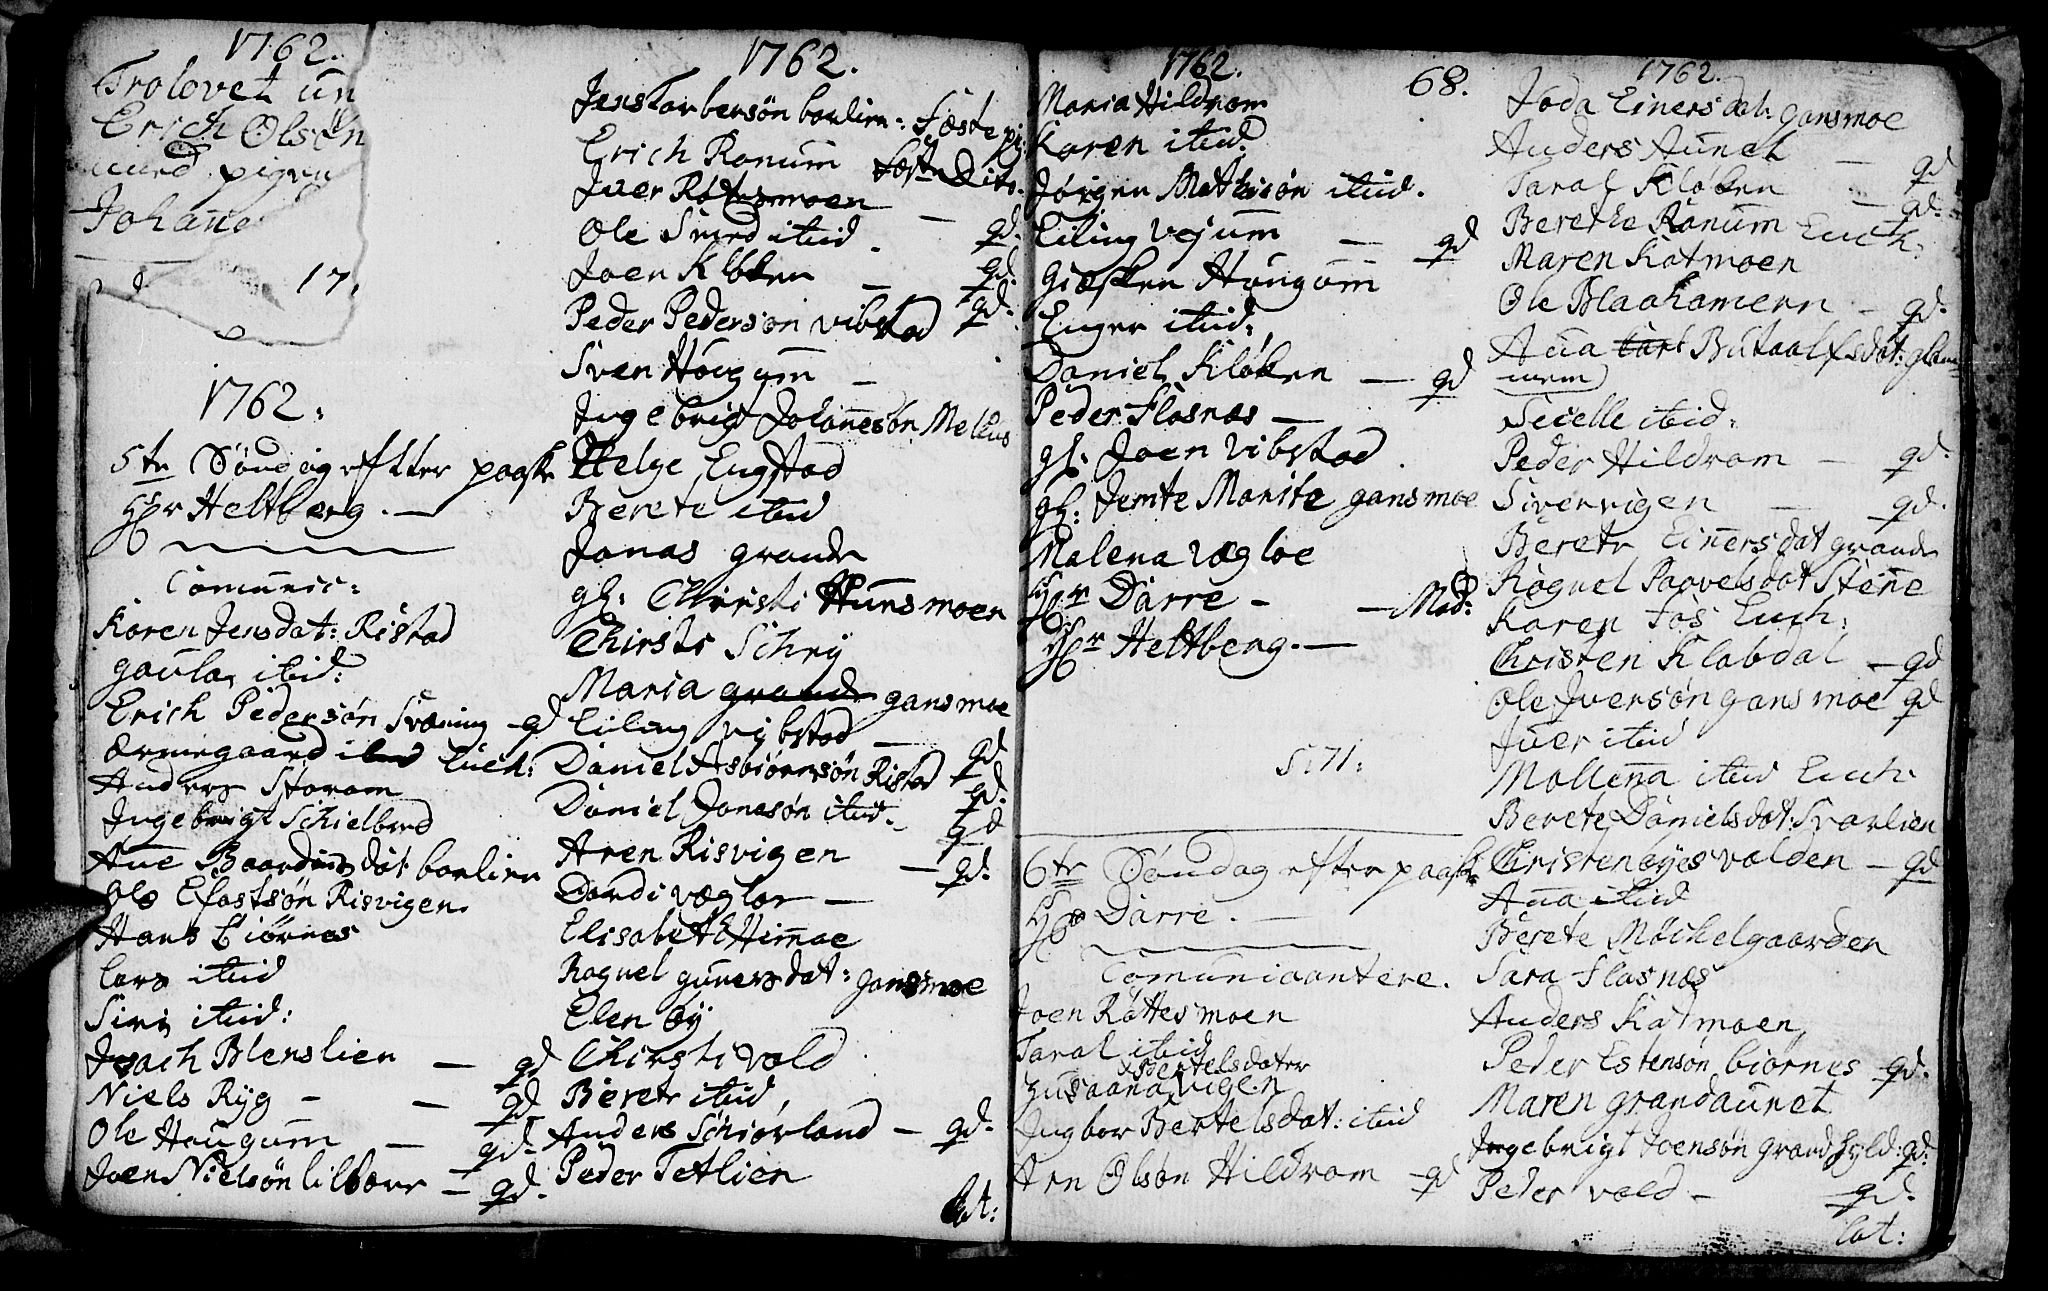 1762.
Trolovet un
Erich Olsøn
med pigen
Johane
17.
1762.
5te Søndag efter paaske
Hr Heltberg.
Comunic:
Karen Jensdat: Ristad
gaula, ibid:
Erich Pedersøn Svæning qd
Armegaard ibid Euch:
Anders Storom
Ingebrigt Schielbred
Ane Baardsdat baalien
Ole Efastsøn Risvigen
Hans biörnes
Lars itid
Siri itid:
Isach Blenslien qd
Niels Ryg - qd
Ole Hougum qd.
Joen Nielsøn lilbærr qd.
1762.
Jens Torbersøn baalien: Fæste pi:
Erich Ranum Fæste Dito.
Iver Røttesmoen
Ole Svird itid qd.
Joen Kløken qd.
Peder Pedersøn vibstad qd.
Sven Hougum
Ingebrigt Johannesøn Melhus
Helge Engstad
Berete itid
Jonas grande
gl: Christi Hunsmoen
Chirsti Schey
Maria grande gansmoe
Eiling vibstad qd
Daniel Asbiørnsøn Ristad qd.
Daniel Jonasøn itid. qd
Aren Risvigen qd.
Dordi vægloe
Elisabeth Himoe
Ragnel gunersdat: gansmoe
Elen by
Chirsti vold
Berete itid,
Anders Schiørland - qd.
Peder Tetlien
lat:
1762. 68.
Maria Hildrom
Karen itid
Jørgen Mathisøn itid.
Eiling vejum qd
Giesken Hougum
Enger itid:
Daniel Kløken qd
Peder Flosnæs
gl. Joen vibstad
gl: Jemte Marite gansmoe
Malena vægloe
Hr Darre - Mad:
Hr Heltberg.
S: 71:
6te Søndag efter paaske
Hr Darre.
Comunicantere.
Joen Røttesmoen
Taral itid
Bertelsdater
Zusaana vigen
Ingbor Bertelsdat: itid
Arn Olsøn Hildrom qd
1762.
Joda Einersdat: gansmoe
Anders Aunet qd
Taral Kløken qd.
Berethe Ranum Euch:
Maren Katmoen
Ole Blaahamern qd.
Ana Butaalfsdat: glem
mem
Sicelle itid:
Peder Hildrom qd.
Sivervigen qd.
Berete Einersdat grande
Ragnel Paavelsdat Stene
Karen Fos Euch:
Christen Klabdal qd
Ole Iversøn gansmoe qd
Iver itid
Mallena itid Euch.
Berete Danielsdat: Svarlien
Christen øyesvolden qd
Ana itid
Berete Møchelgaarden
Sara Flasnes
Anders Katmoen
Peder Estensøn biörnes qd.
Maren grandaunet
Ingebrigt Joensøn grandhyld: qd:
Peder vold qd.
lat: